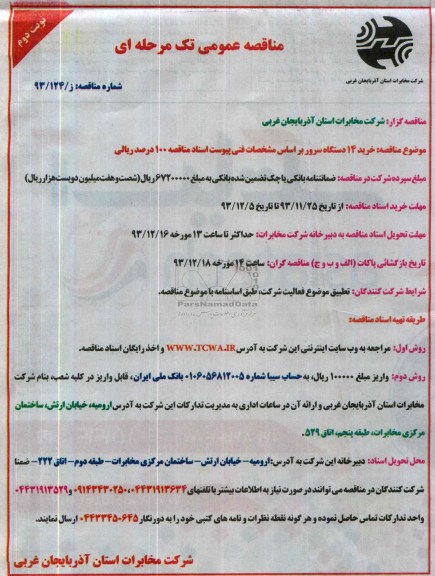 نوبت دوم
شرکت مخابرات استان آذربایجان غربی
مناقصه عمومی تک مرحله ای
شماره مناقصه: ز/۹۳/۱۲۴
مناقصه گزار: شرکت مخابرات استان آذربایجان غربی
موضوع مناقصه: خرید ۱۴ دستگاه سرور بر اساس مشخصات فنی پیوست اسناد مناقصه ۱۰۰ درصد ریالی
مبلغ سپرده شرکت در مناقصه: ضمانتنامه بانکی یا چک تضمین شده بانکی به مبلغ ۶۷۲۰۰۰۰۰ ریال (شصت و هفت میلیون دویست هزار ریال)
مهلت خرید اسناد مناقصه: از تاریخ ۹۳/۱۱/۲۵ تا تاریخ ۹۳/۱۲/۵
مهلت تحویل اسناد مناقصه به دبیرخانه شرکت مخابرات: حداکثر تا ساعت ۱۳ مورخه ۹۳/۱۲/۱۶
تاریخ بازگشائی پاکات (الف و ب و ج) مناقصه گران: ساعت ۱۴ مورخه ۹۳/۱۲/۱۸
شرایط شرکت کنندگان: تطبیق موضوع فعالیت شرکت، طبق اساسنامه با موضوع مناقصه.
ParsNamadData
طریقه تهیه اسناد مناقصه:
روش اول: مراجعه به وب سایت اینترنتی این شرکت به آدرس WWW.TCWA.IR و اخذ رایگان اسناد مناقصه.
روش دوم: واریز مبلغ ۱۰۰۰۰۰ ریال، به حساب سیبا شماره ۰۱۰۶۰۵۶۸۱۲۰۰۵ بانک ملی ایران، قابل واریز در کلیه شعب، بنام شرکت
مخابرات استان آذربایجان غربی و ارائه آن در ساعات اداری به مدیریت تدارکات این شرکت به آدرس ارومیه، خیابان ارتش، ساختمان
مرکزی مخابرات، طبقه پنجم، اتاق ۵۲۹.
محل تحویل اسناد: دبیرخانه این شرکت به آدرس: ارومیه - خیابان ارتش - ساختمان مرکزی مخابرات - طبقه دوم - اتاق ۲۲۲- ضمنا
شرکت کنندگان در مناقصه می توانند در صورت نیاز به اطلاعات بیشتر با تلفنهای ۰۴۴۳۱۹۱۳۶۳۴، ۰۹۱۴۳۴۳۰۲۵۰ و ۰۴۴۳۱۹۱۳۵۲۹
واحد تدارکات تماس حاصل نموده و هر گونه نقطه نظرات و نامه های کتبی خود را به دورنگار ۰۴۴۳۳۴۵۰۶۴۵ ارسال نمایند.
شرکت مخابرات استان آذربایجان غربی